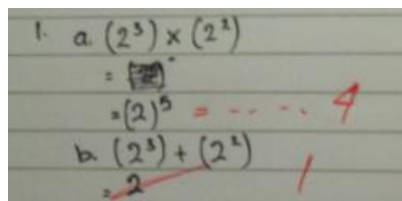 1. a. (2³) × (2²)
=
= (2)⁵ = ..... 4
b. (2³) + (2²)
= 2 /